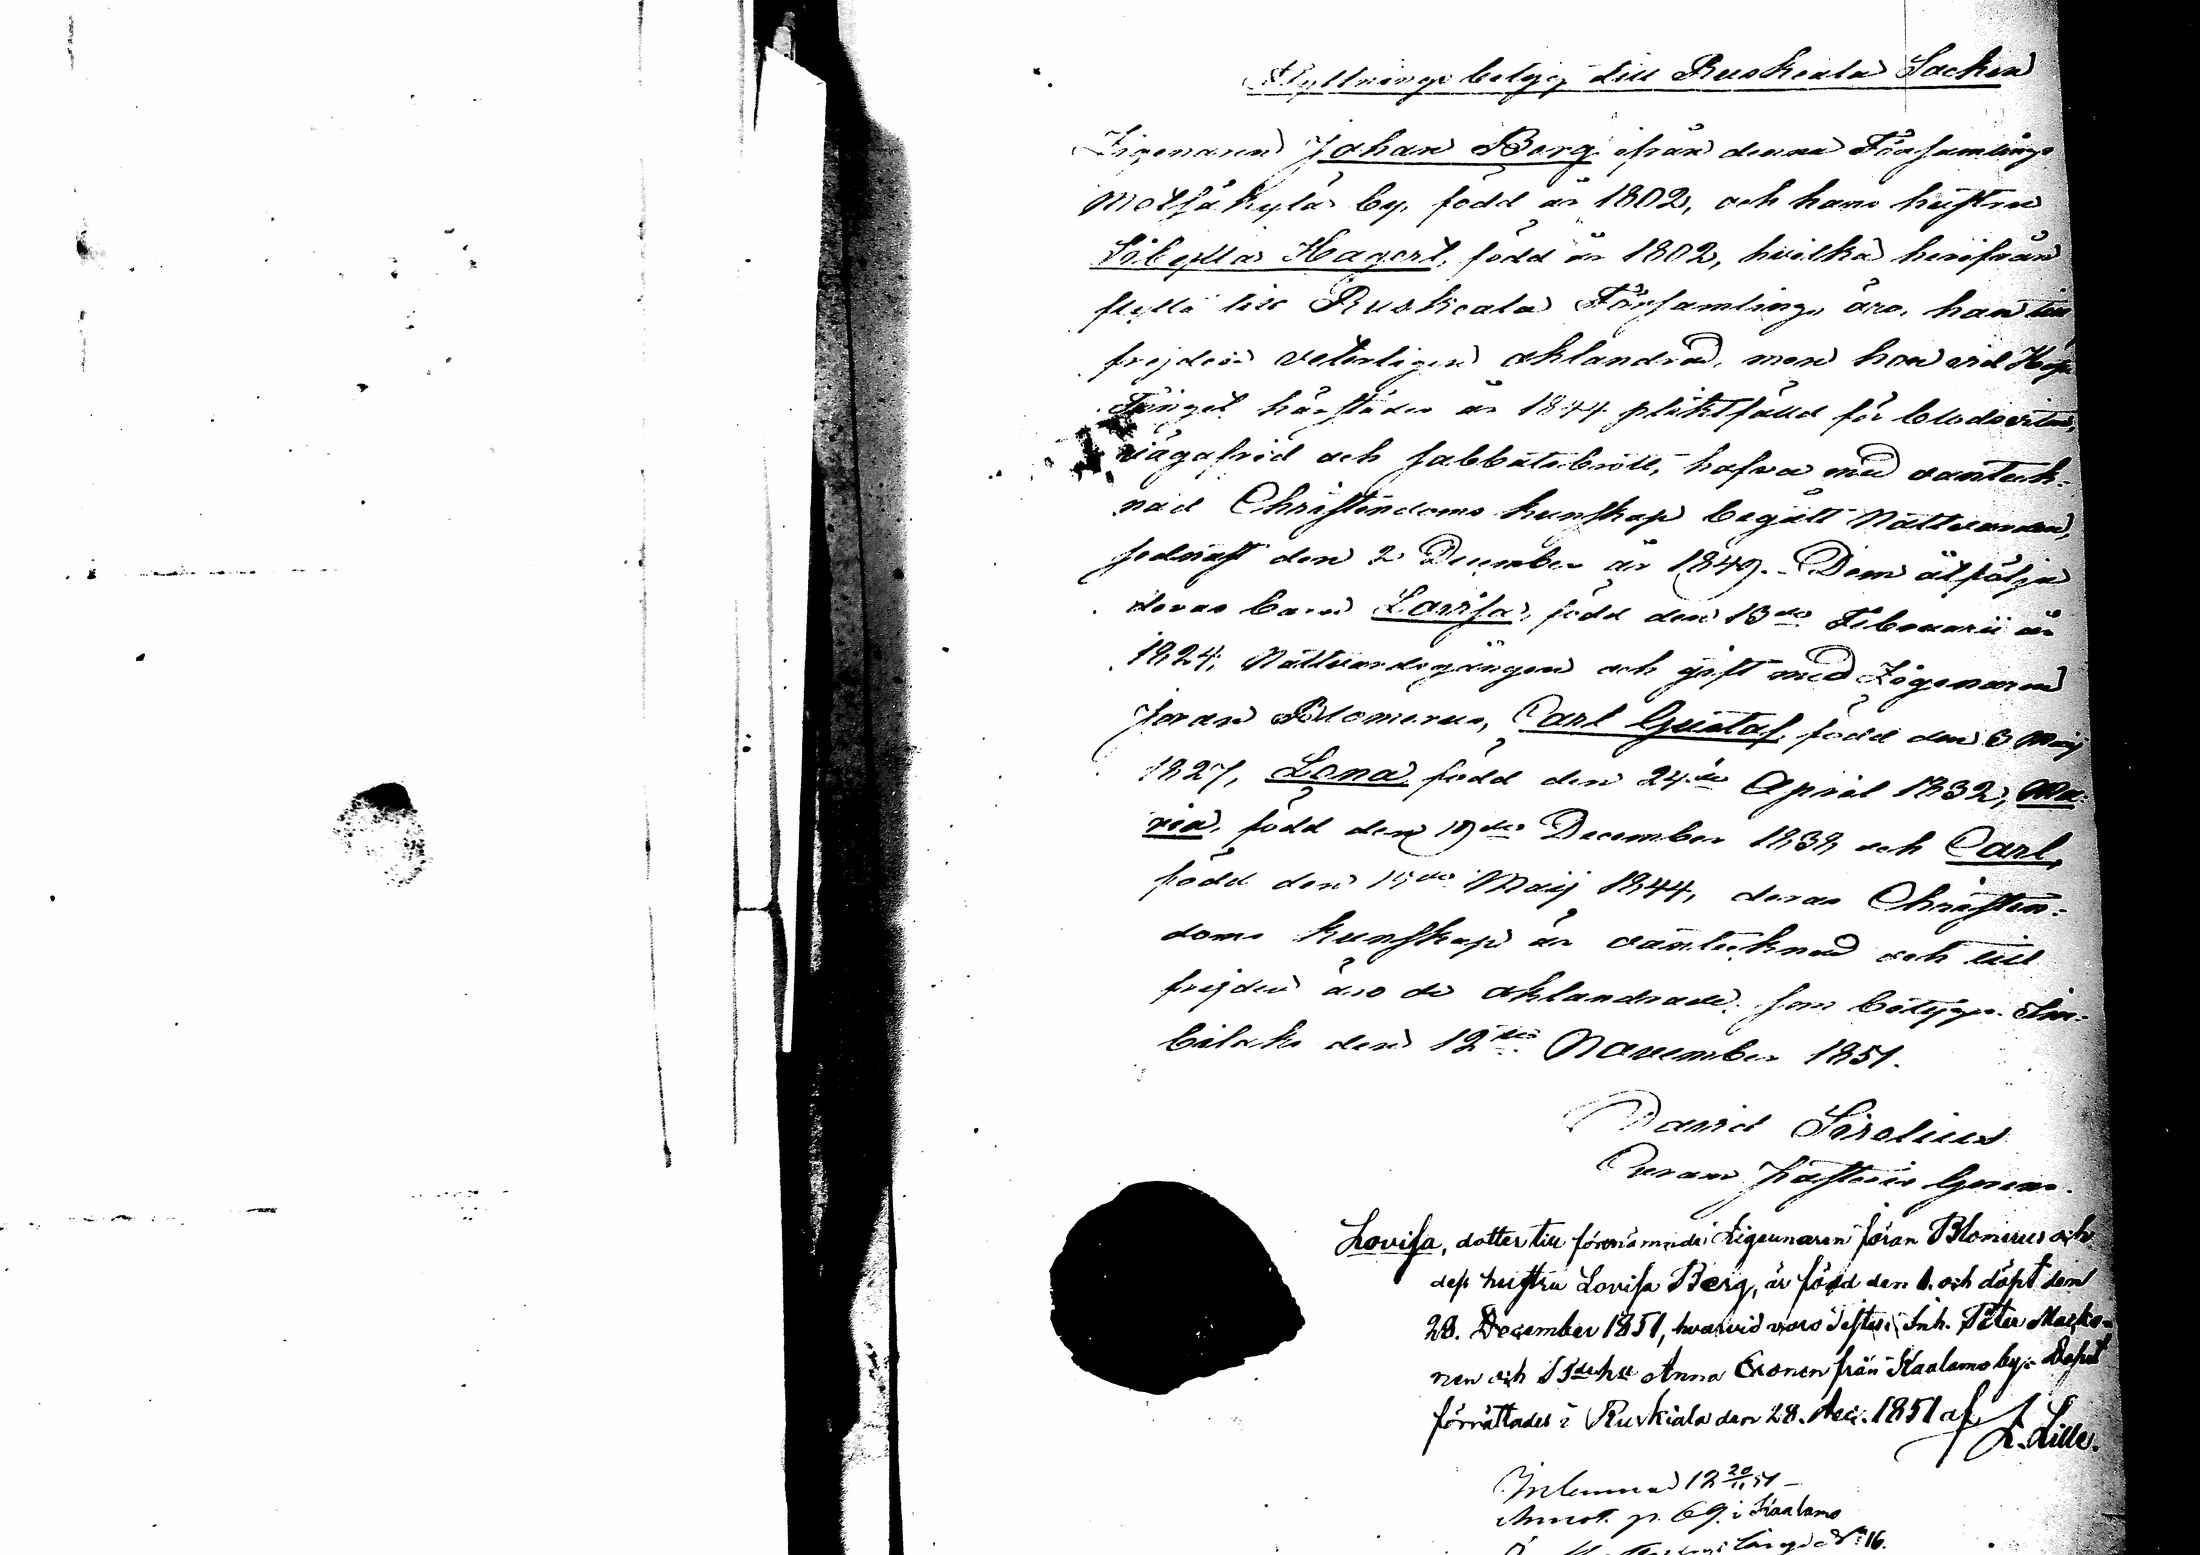 Flyttnings betyg till Ruskeala Socken
Zigenaren Johan Berg ifrån denna Församlings
Metsäkylä by, född år 1802, och hans hustru
Sibylla Hagert, född år 1802, hvilka herifrån
flytta till Ruskeala Församling, äro, han till
frejden veterligen oklandrad, men hon vid
Tinget härstädes år 1844 pliktfälld för blodvite,
vägafrid och sabbatsbrott, hafva med anteck-
nad Christendoms kunskap begått Nattvarden,
sednast den 2 December år 1849. Dem åtfölja
deras barn Lovisa, född den 13de Februarii år
1824, Nattvardsgången och gift med Zigenaren
Jöran Blomerus, Carl Gustaf, född den 3 Maij
1827, Lena född den 24de April 1832, Ma-
ria, född den 19de December 1838 och Carl,
född den 15de Maij 1844, deras Christen-
doms kunskap är antecknad och till
frejden äro de oklandrade. som betygar. Im-
bilaks den 12te November 1851.
David Sirelius
Lovisa, dotter till förenämnde Zigeunaren Jöran Blomerus och
dess hustru Lovisa Berg, är född den 1. och döpt den
28. December 1851, hvarvid voro testes: Inh. Peter Macko-
nen och hu Anna Eronen från Kaalamo by. Dopet
förrättades i Ruskiala den 28. Dec. 1851 af L. Lille.
Inlemnad 12 20/11 51 –
Annot. p. 69. i Kaalamo
№ 16.